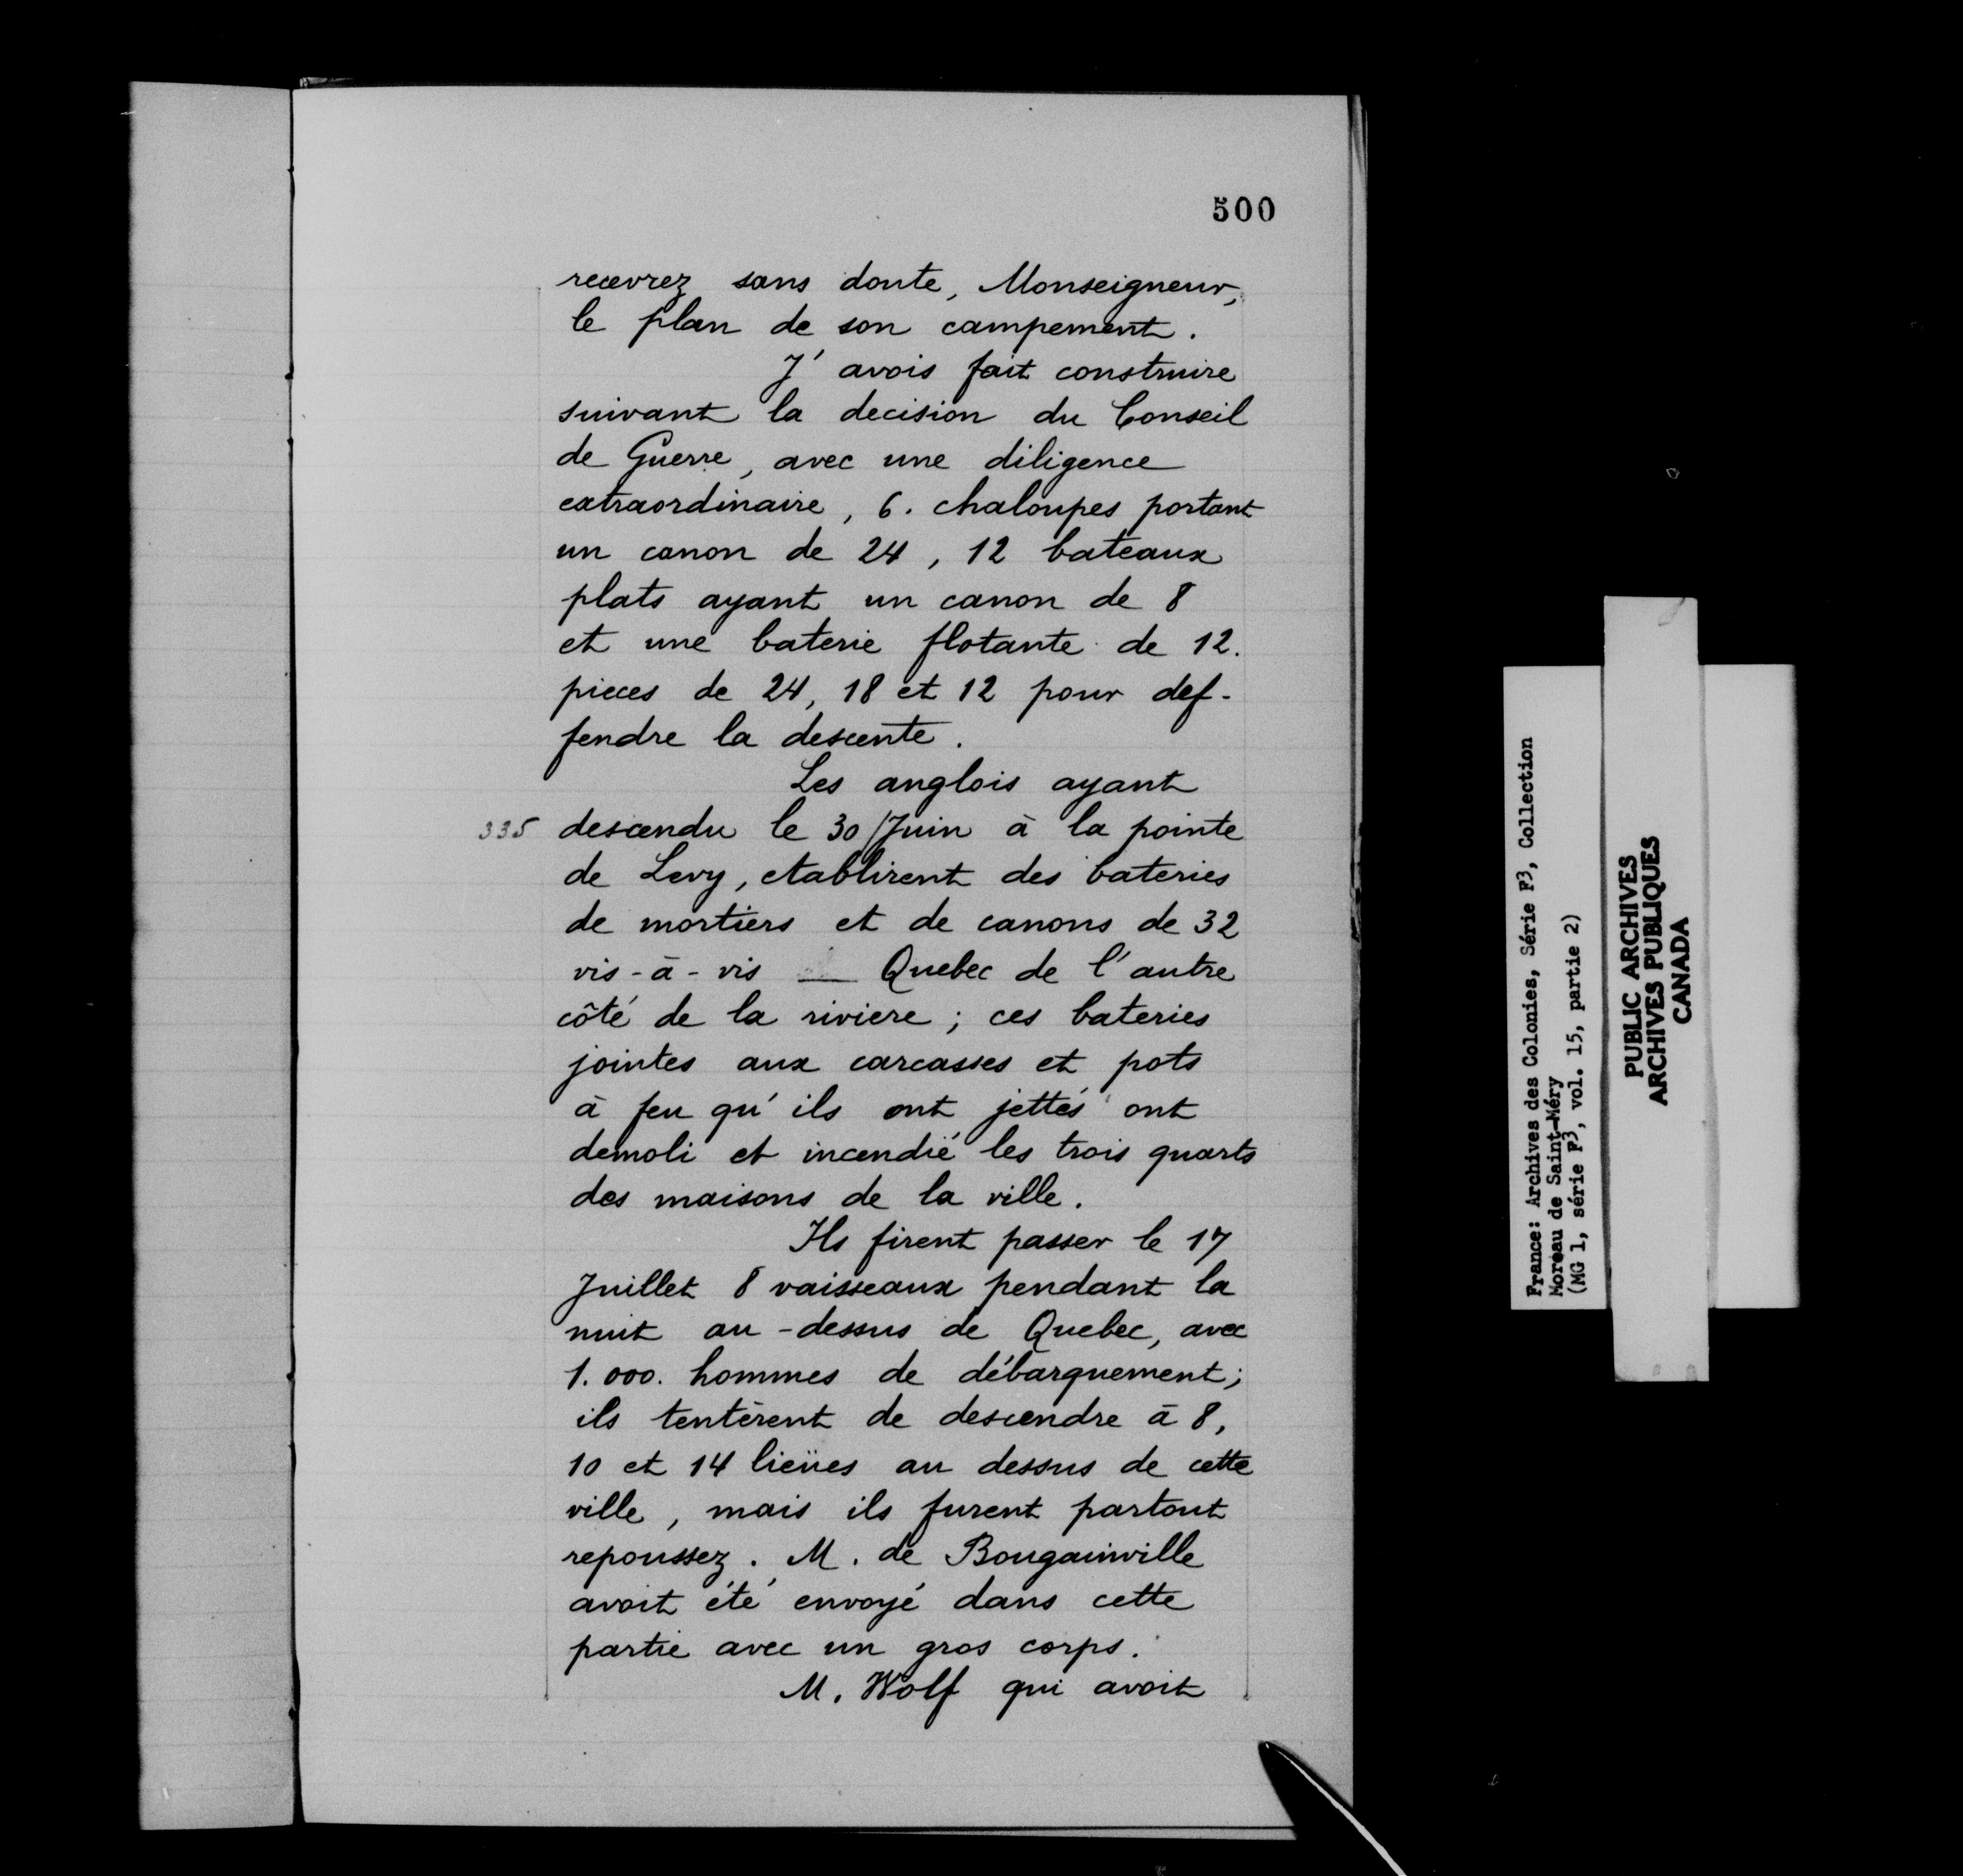 500
recevrez sans doute, Monseigneur,
le plan de son campement.
J' avois fait construire
suivant la decision du Conseil
de Guerre, avec une diligence
extraordinaire, 6. chaloupes portant
un canon de 24, 12 bateaux
plats ayant un canon de 8
et une baterie flotante de 12.
pieces de 24, 18 et 12 pour def-
fendre la descente.
Les anglois ayant
335 descendu le 30/Juin à la pointe
de Levy, etablirent des bateries
de mortiers et de canons de 32
vis-à-vis — Quebec de l'autre
côté de la riviere; ces bateries
jointes aux carcasses et pots
à feu qu'ils ont jettés ont
demoli et incendié les trois quarts
des maisons de la ville.
Ils firent passer le 17
Juillet 8 vaisseaux pendant la
nuit au-dessus de Quebec, avec
1.000. hommes de débarquement;
ils tentèrent de descendre à 8,
10 et 14 lieües au dessus de cette
ville, mais ils furent partout
repoussez. M. de Bougainville
avoit été envoyé dans cette
partie avec un gros corps.
M. Wolf qui avoit
France: Archives des Colonies, Série F3, Collection
Moreau de Saint-Méry
(MG 1, série F3, vol. 15, partie 2)
PUBLIC ARCHIVES
ARCHIVES PUBLIQUES
CANADA